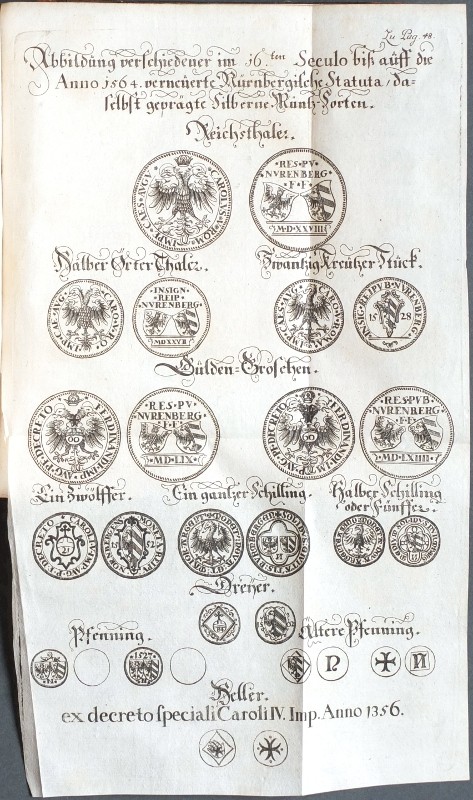 Zu Pag. 48.
Abbildung verschiedener im 16.ten Seculo biß auff die
Anno 1564. verneüerte Nürnbergische Statuta, da-
selbst geprägte Silberne Müntz-Sorten.
Reichsthaler.
CAROLVS ROM IMP CÆS AVGV
RES PV
NVRENBERG
F F
M D XXVIII
Halber Örter Thaler. Zwantzig Kreützer Stück.
INSIGN
REIP
NVRENBERG
MDXXVII
INSIG REIPVB NVRENBERG
15 28
Gülden-Groschen.
FERDINAND IMP AVG P F DECRETO
60
RES PV
NVRENBERG
F F
MD LIX
60
RES PVB
NVRENBERG
F F
MD LXIIII
Ein Zwölffer. Ein gantzer Schilling. Halber Schilling
oder Fünffer.
Dreyer.
84
Pfenning. Ältere Pfenning.
1527
N
N
Heller.
ex decreto speciali Caroli IV. Imp. Anno 1356.